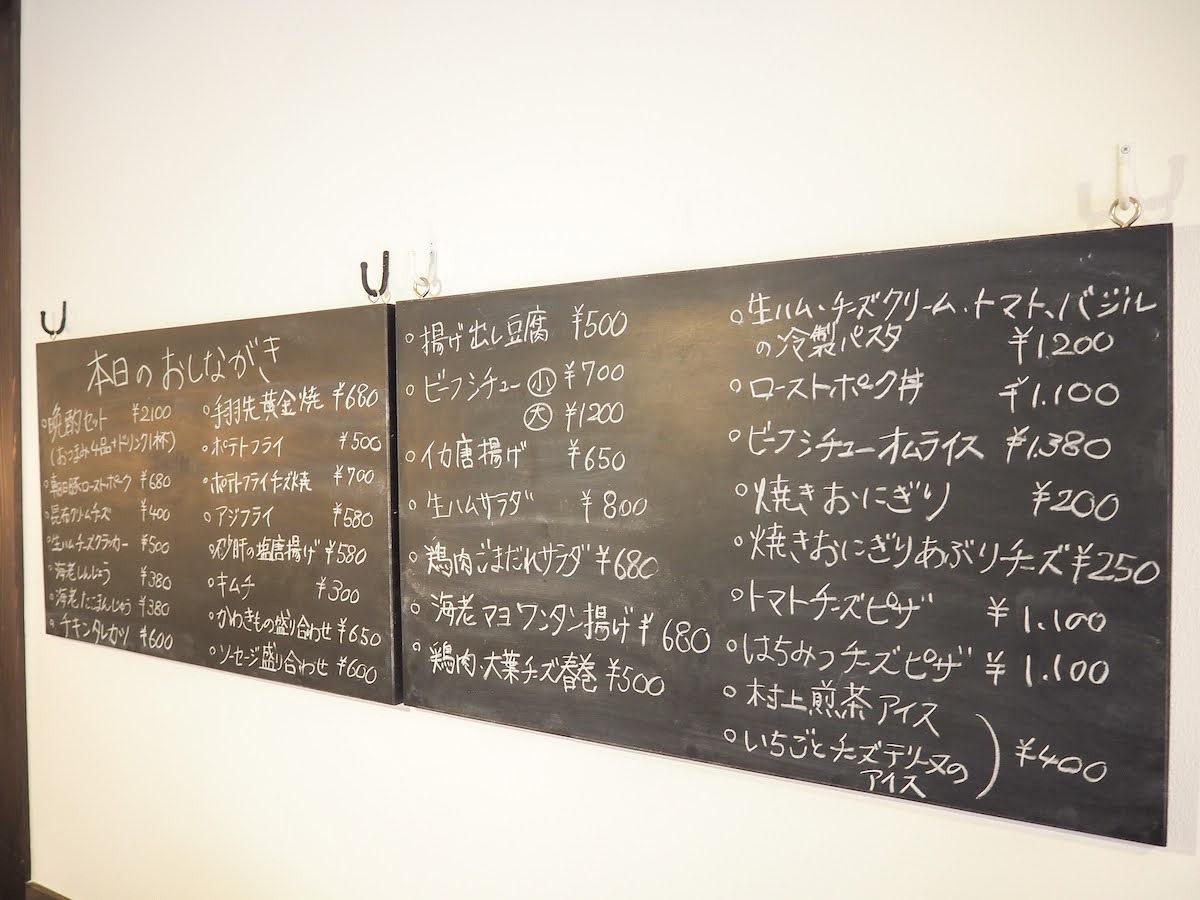 本日のおしながき
○晩酌セット ¥2100
(おつまみ4品+ドリンク1杯)
○朝日豚ローストポーク ¥680
○昆布クリームチーズ ¥400
○生ハムチーズクラッカー ¥500
○海老しんじょう ¥380
○海老たこまんじゅう ¥380
○チキンタレカツ ¥600
○手羽先黄金焼 ¥680
○ポテトフライ ¥500
○ポテトフライチーズ焼 ¥700
○アジフライ ¥580
○砂肝の塩唐揚げ ¥580
○キムチ ¥300
○かわきもの盛り合わせ ¥650
○ソーセージ盛り合わせ ¥600
○揚げ出し豆腐 ¥500
○ビーフシチュー 小 ¥700
大 ¥1200
○イカ唐揚げ ¥650
○生ハムサラダ ¥800
○鶏肉ごまだれサラダ ¥680
○海老マヨワンタン揚げ ¥680
○鶏肉大葉チーズ春巻 ¥500
○生ハム、チーズクリーム、トマト、バジル
の冷製パスタ ¥1.200
○ローストポーク丼 ¥1.100
○ビーフシチューオムライス ¥1.380
○焼きおにぎり ¥200
○焼きおにぎりあぶりチーズ ¥250
○トマトチーズピザ ¥1.100
○はちみつチーズピザ ¥1.100
○村上煎茶アイス
○いちごとチーズテリーヌの
アイス ) ¥400